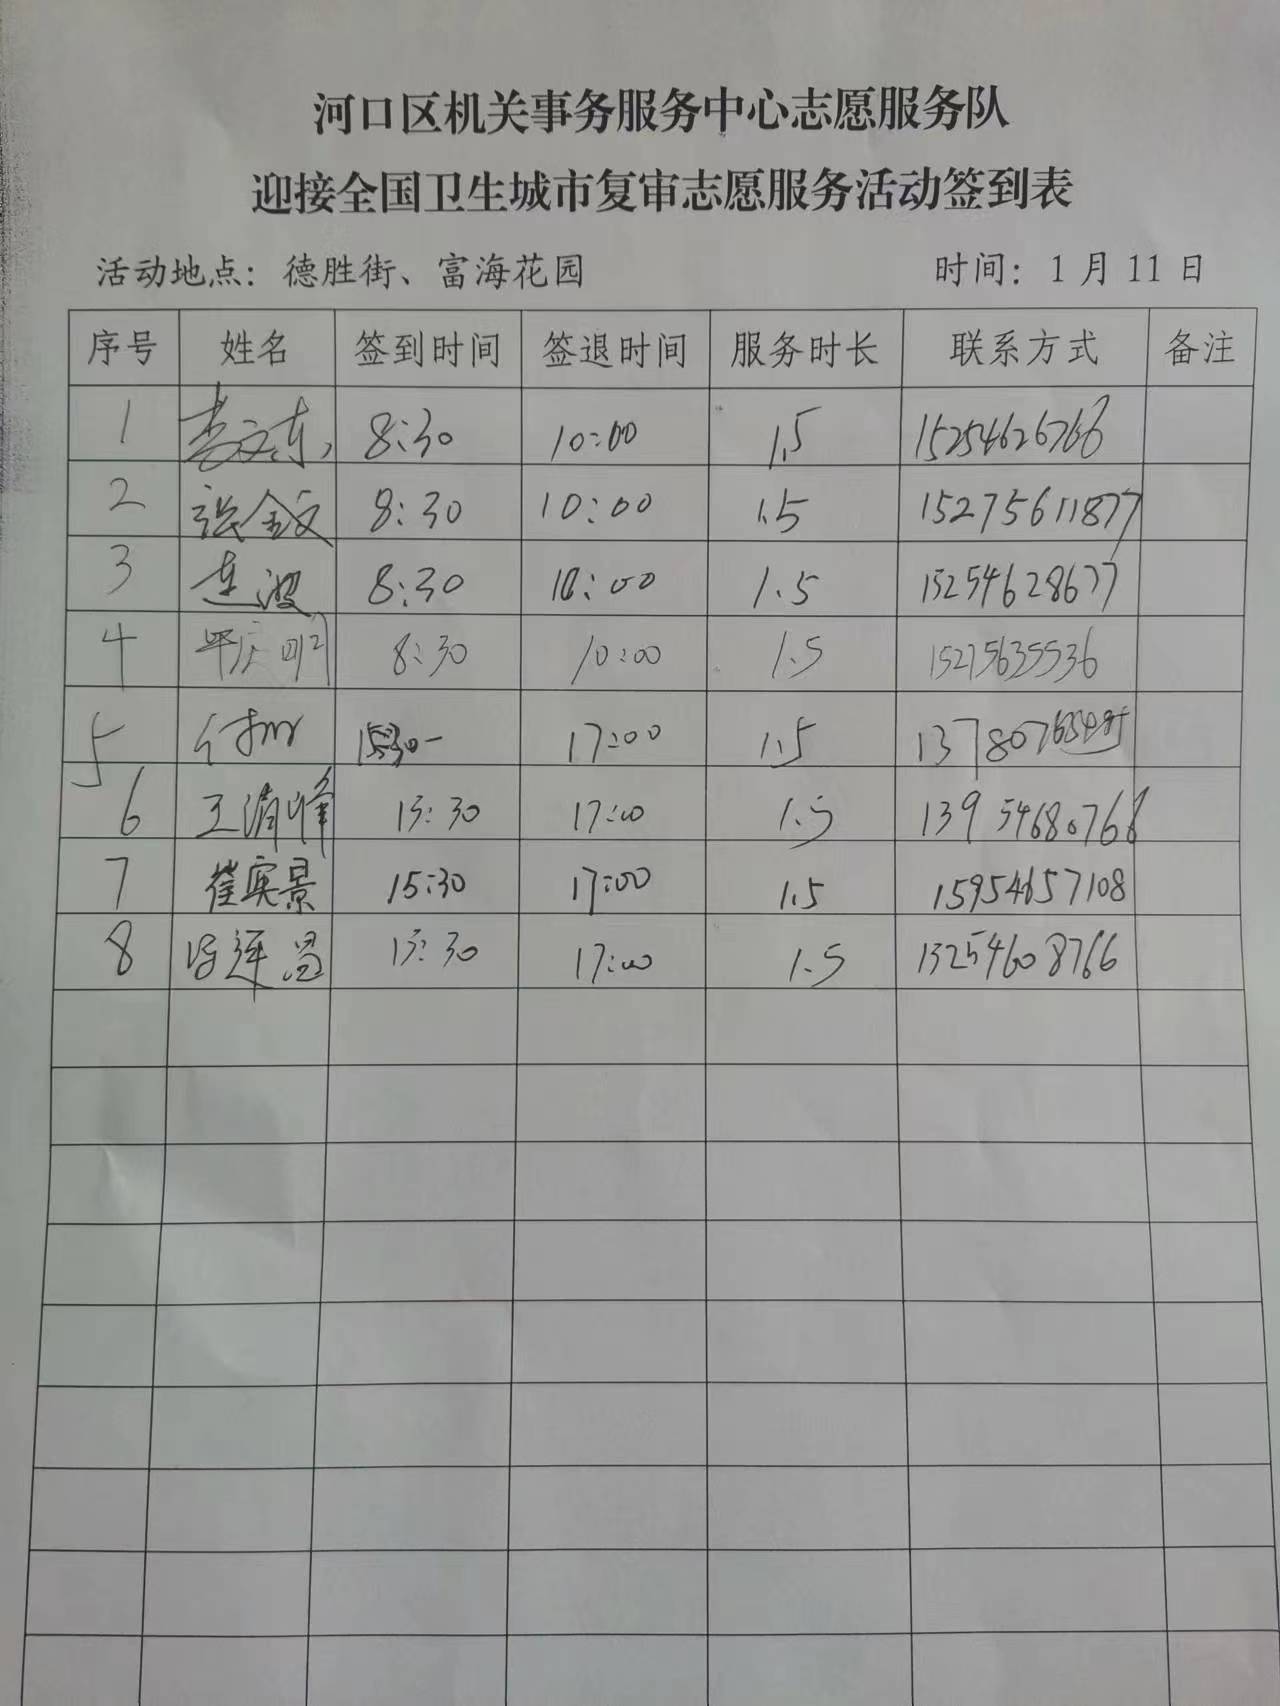 河口区机关事务服务中心志愿服务队
迎接全国卫生城市复审志愿服务活动签到表
活动地点：德胜街、富海花园 时间：1月11日
序号 姓名 签到时间 签退时间 服务时长 联系方式 备注
1 李文东 8:30 10:00 1.5 15254626766
2 张金文 8:30 10:00 1.5 15275611877
3 连波 8:30 10:00 1.5 15254628677
4 8:30 10:00 1.5 15275635536
5 15:30 17:00 1.5
6 王清峰 15:30 17:00 1.5 13954680768
7 崔宾景 15:30 17:00 1.5 15954657108
8 15:30 17:00 1.5 13254608766